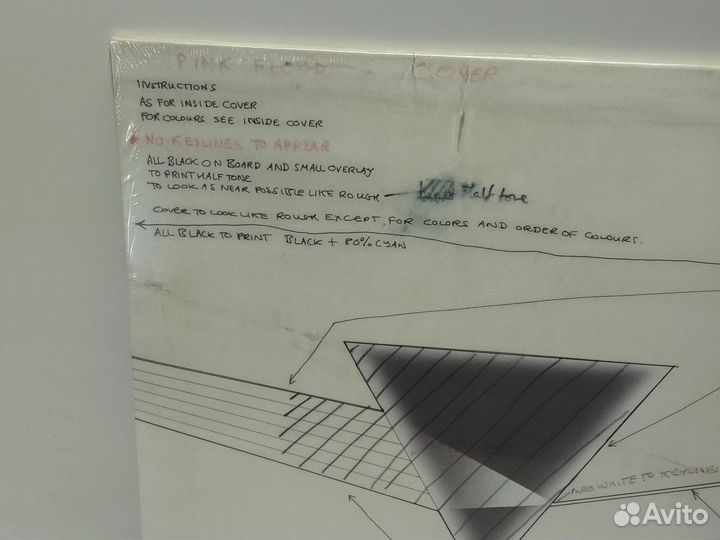 PINK FLOYD . COVER
INSTRUCTIONS
AS FOR INSIDE COVER
FOR COLOURS SEE INSIDE COVER
* NO KEYLINES TO APPEAR
ALL BLACK ON BOARD AND SMALL OVERLAY
TO PRINT HALF TONE
TO LOOK AS NEAR POSSIBLE LIKE ROUGH Half tone
COVER TO LOOK LIKE ROUGH EXCEPT FOR COLORS AND ORDER OF COLOURS.
ALL BLACK TO PRINT BLACK + 80% CYAN
WHITE TO KEYLINE
Avito